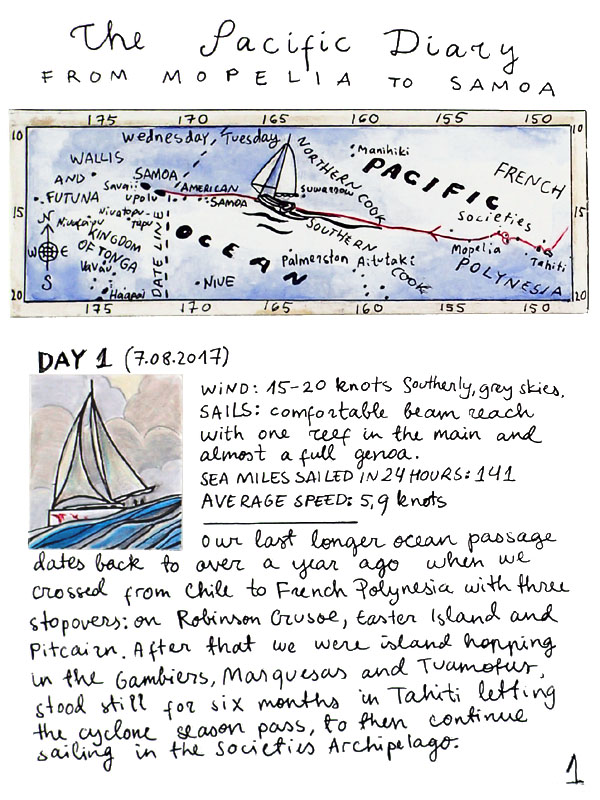 The Pacific Diary
FROM MOPELIA TO SAMOA
175 170 165 160 155 150
10 10
Wednesday, Tuesday
WALLIS
AND
FUTUNA
Manihiki
PACIFIC
FRENCH
NORTHERN COOK
SAMOA
Savaii
Upolu
AMERICAN
SAMOA
Suwarrow
15 15
N
W E
S
Niuafo'ou
Niuatopu-
tapu
KINGDOM
OF TONGA
Vavau
Haapai
DATE LINE
OCEAN
SOUTHERN
COOK
Societies
Mopelia
Tahiti
POLYNESIA
Palmerston Aitutaki
NIUE
20 20
175 170 165 160 155 150
DAY 1 (7.08.2017)
WIND: 15-20 knots Southerly, grey skies.
SAILS: comfortable beam reach
with one reef in the main and
almost a full genoa.
SEA MILES SAILED IN 24 HOURS: 141
AVERAGE SPEED: 5,9 knots
Our last longer ocean passage
dates back to over a year ago when we
crossed from Chile to French Polynesia with three
stopovers: on Robinson Crusoe, Easter Island and
Pitcairn. After that we were island hopping
in the Gambiers, Marquesas and Tuamotus,
stood still for six months in Tahiti letting
the cyclone season pass, to then continue
sailing in the Societies Archipelago.
1